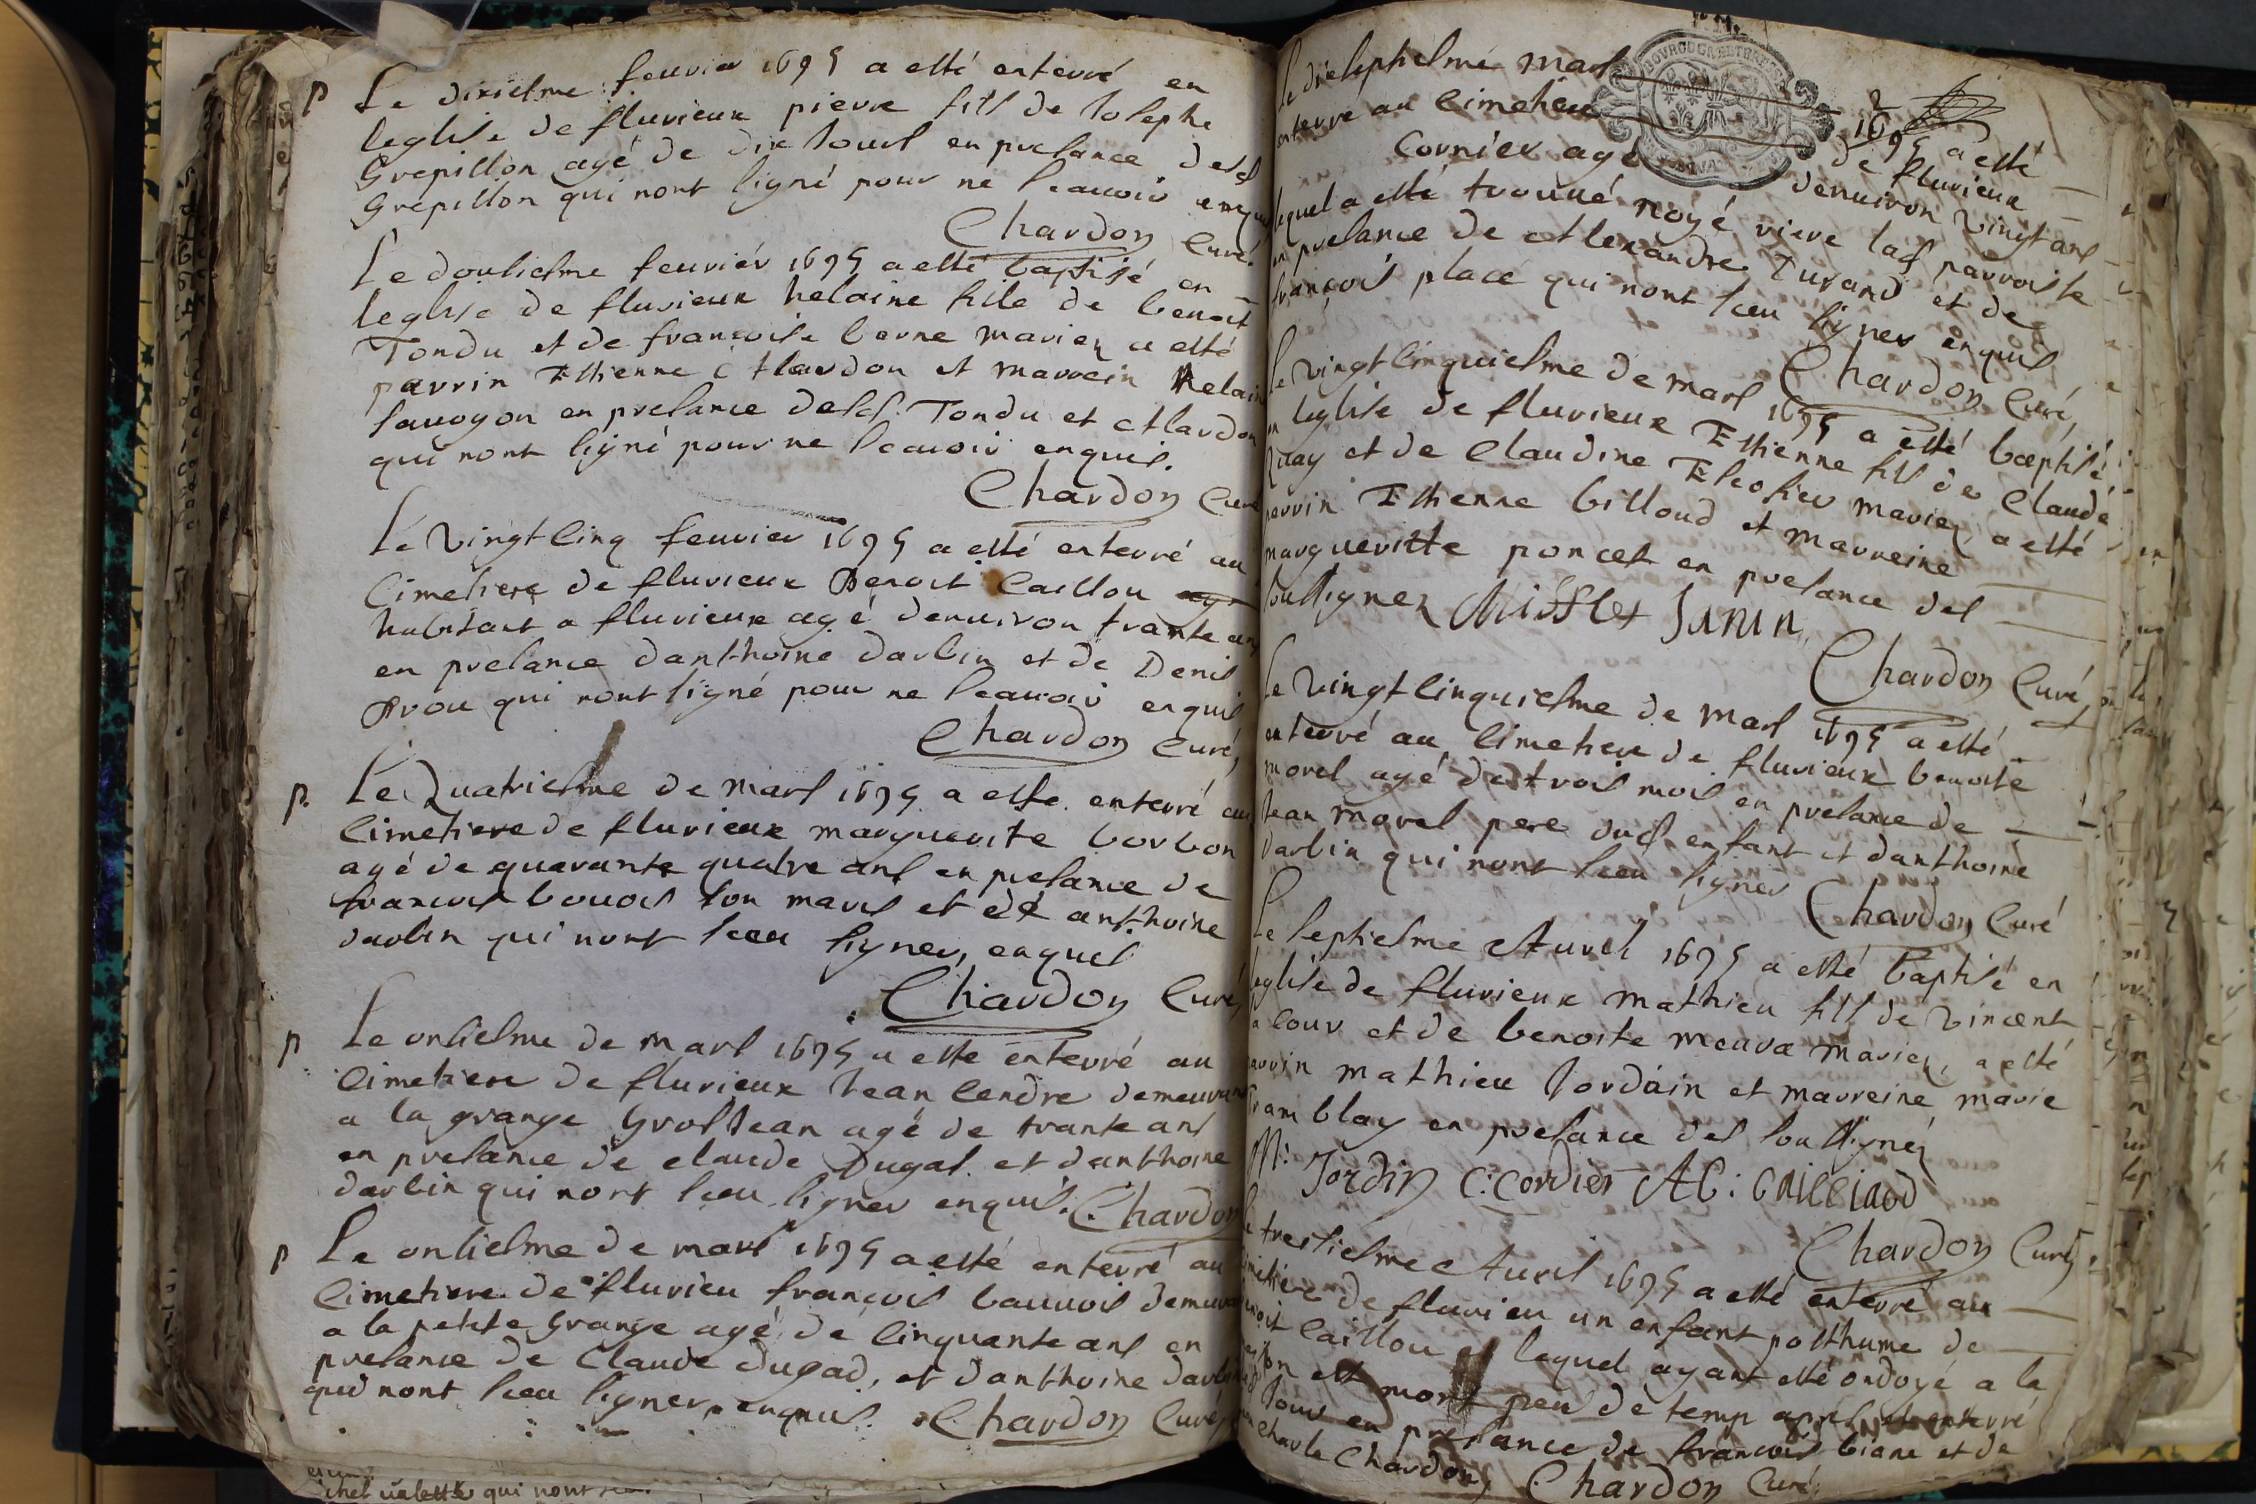 p Le dixiesme feuvier 1695 a esté enterré en
leglise de fluvieux pierre fils de Joseph
Grepillon agé de dix Jours en presance desd
Grepillon qui nont signé pour ne scauoir enquis
Chardon Curé
Le dousiesme feuvier 1695 a esté baptisé en
leglise de fluvieux helaine file de benoit
Tondu et de francoise berne mariez a esté
parrin Estienne Alardon et marrein helaine
sauoyon en presance desd. Tondu et Alardon
qui nont signé pour ne scauoir enquis.
Chardon Curé
Le vingt cinq feuvier 1695 a esté enterré au
Cimetiere de fluvieux Benoit Caillou
habitant a fluvieux agé denuiron trante ans
en presance danthoine darbin et de Denis
Brou qui nont signé pour ne scauoir enquis
Chardon Curé
p. Le Quatriesme de mars 1695 a esté enterré au
Cimetiere de fluvieux marguerite borbon
agé de quarante quatre ans en presance de
francois bouois son maris et de anthoine
darbin qui nont sceu signer, enquis
Chardon Curé
p Le onsiesme de mars 1695 a esté enterré au
Cimetiere de fluvieux Jean Cendre demeurant
a la grange Grosjean agé de trante ans
en presance de claude Dugas et danthoine
darbin qui nont sceu signer enquis. Chardon
p Le onsiesme de mars 1695 a esté enterré au
Cimetiere de fluvieu francois bauuois demeurant
a la petite Grange agé de Cinquante ans en
presance de Claude dugad, et danthoine darbin
qui nont sceu signer, enquis. Chardon Curé
chel valette qui nont
Le diseptiesme mars 1695 a esté
enterré au Cimetiere de fluvieux
Cornier agé denuiron vingt ans
lequel a esté trouué noyé riere lad parroisse
en presance de Alexandre Durand et de
francois place qui nont sceu signer enquis
Chardon Curé
Le vingt cinquiesme de mars 1695 a esté baptisé
en leglise de fluvieux Estienne fils de Claude
et de Claudine Escofier mariez, a esté
parrin Estienne billoud et marreine
marguerite poncet en presance des
soussignez Janin
Chardon Curé
Le vingt cinquiesme de mars 1695 a esté
enterré au Cimetiere de fluvieux benoite
morel agé de trois mois en presance de
Jean morel pere dud. enfant et danthoine
darbin qui nont sceu signer Chardon Curé
Le septiesme Auril 1695 a esté baptisé en
leglise de fluvieux mathieu fils de vincent
a cour et de benoite meuva mariez, a esté
parrin mathieu Jordain et marreine marie
Tramblay en presance des soussignéz
M. Jordin C: Cordier A C: Cailliaud
Chardon Curé
Le tresiesme Auril 1695 a esté enterré au
Cimetiere de fluvieu un enfant posthume de
benoit Caillou lequel ayant esté ondoyé a la
maison est mort peu de temp apres et enterré
Jour en presance de francois biane et de
Charle Chardon Chardon Curé